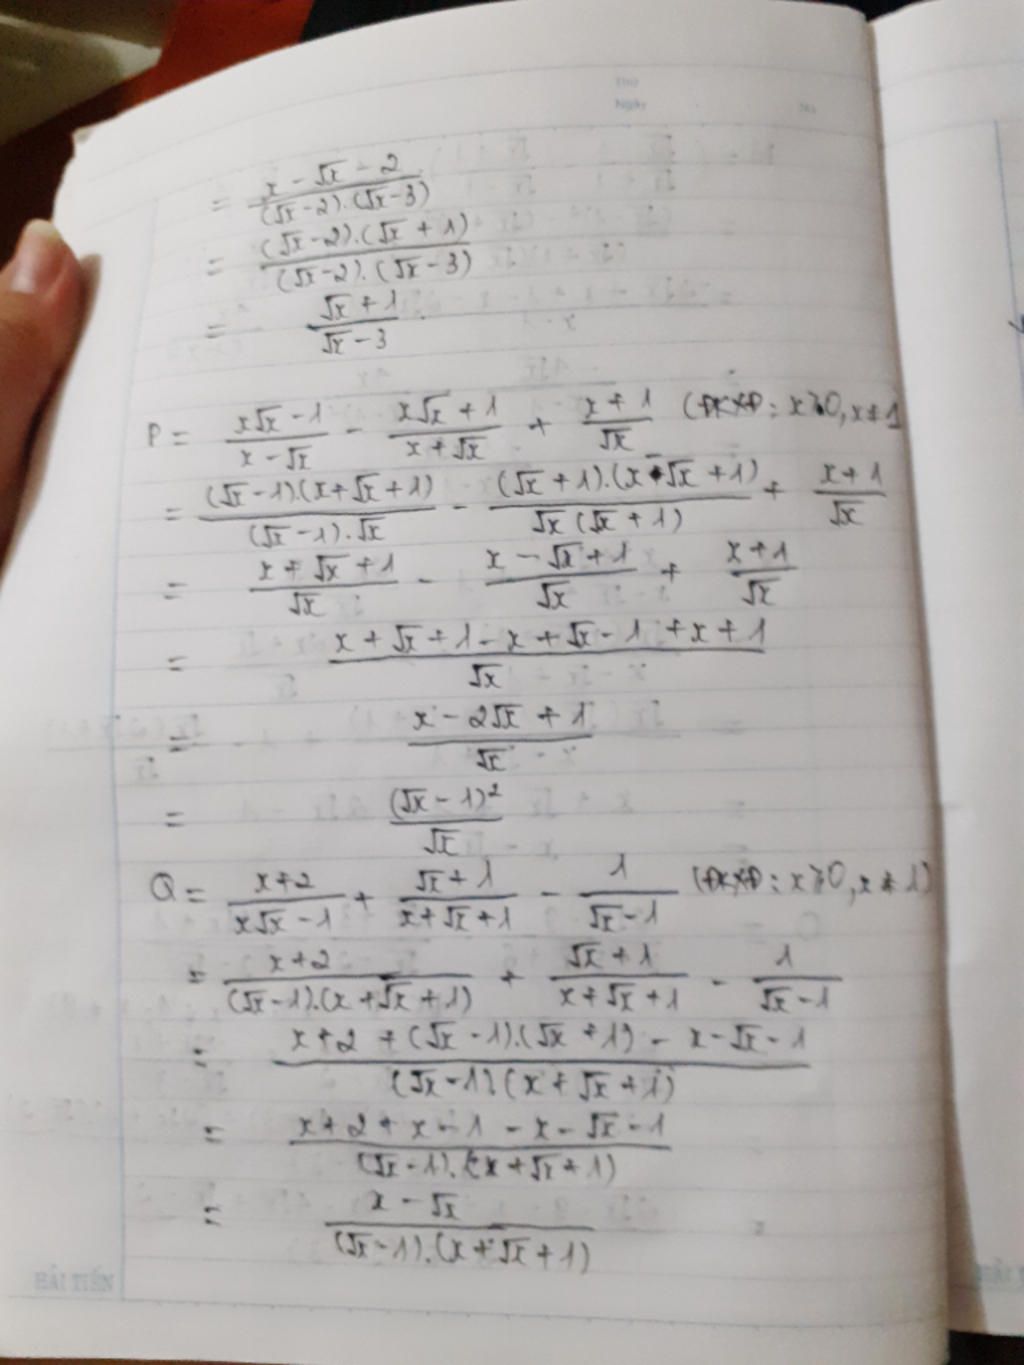 Thứ
Ngày No.
= \frac{x - \sqrt{x} - 2}{(\sqrt{x} - 2).(\sqrt{x} - 3)}
= \frac{(\sqrt{x} - 2).(\sqrt{x} + 1)}{(\sqrt{x} - 2).(\sqrt{x} - 3)}
= \frac{\sqrt{x} + 1}{\sqrt{x} - 3}
P = \frac{x\sqrt{x} - 1}{x - \sqrt{x}} - \frac{x\sqrt{x} + 1}{x + \sqrt{x}} + \frac{x + 1}{\sqrt{x}} (ĐKXĐ: x ≥ 0, x ≠ 1
= \frac{(\sqrt{x} - 1).(x + \sqrt{x} + 1)}{(\sqrt{x} - 1).\sqrt{x}} - \frac{(\sqrt{x} + 1).(x - \sqrt{x} + 1)}{\sqrt{x}(\sqrt{x} + 1)} + \frac{x + 1}{\sqrt{x}}
= \frac{x + \sqrt{x} + 1}{\sqrt{x}} - \frac{x - \sqrt{x} + 1}{\sqrt{x}} + \frac{x + 1}{\sqrt{x}}
= \frac{x + \sqrt{x} + 1 - x + \sqrt{x} - 1 + x + 1}{\sqrt{x}}
= \frac{x - 2\sqrt{x} + 1}{\sqrt{x}}
= \frac{(\sqrt{x} - 1)^2}{\sqrt{x}}
Q = \frac{x + 2}{x\sqrt{x} - 1} + \frac{\sqrt{x} + 1}{x + \sqrt{x} + 1} - \frac{1}{\sqrt{x} - 1} (ĐKXĐ: x ≥ 0, x ≠ 1)
= \frac{x + 2}{(\sqrt{x} - 1).(x + \sqrt{x} + 1)} + \frac{\sqrt{x} + 1}{x + \sqrt{x} + 1} - \frac{1}{\sqrt{x} - 1}
= \frac{x + 2 + (\sqrt{x} - 1).(\sqrt{x} + 1) - x - \sqrt{x} - 1}{(\sqrt{x} - 1).(x + \sqrt{x} + 1)}
= \frac{x + 2 + x - 1 - x - \sqrt{x} - 1}{(\sqrt{x} - 1).(x + \sqrt{x} + 1)}
= \frac{x - \sqrt{x}}{(\sqrt{x} - 1).(x + \sqrt{x} + 1)}
HẢI TIẾN